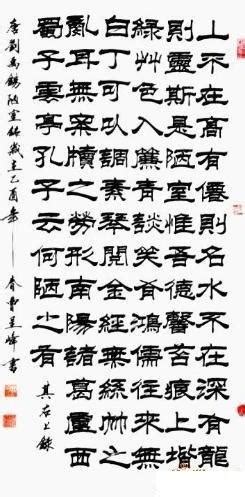 山不在高有僊則名水不在深有龍
則靈斯是陋室惟吾德馨苔痕上堦
綠艸色入簾青談笑有鴻儒往來無
白丁可以調素琴閱金經無絲竹之
亂耳無案牘之勞形南陽諸葛廬西
蜀子雲亭孔子云何陋之有
唐劉禹錫陋室銘歲在乙酉春曹書